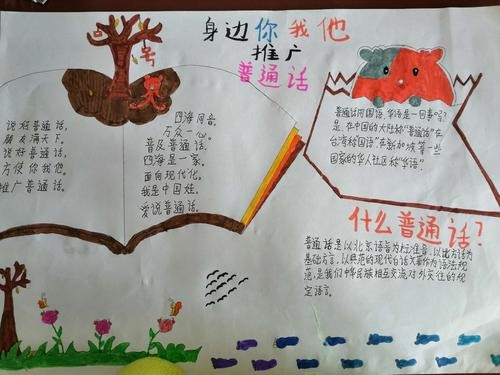 号
身边你我他
推广
普通话
说好普通话，
朋友满天下。
说好普通话，
方便你我他。
推广普通话。
四海同音，
万众一心。
普及普通话。
四海是一家。
面向现代化。
我是中国娃。
爱说普通话。
普通话同国语，华语是一回事吗？
是，在中国的大陆称"普通话"在
台湾称"国语"，在新加坡等一些
国家的华人社区称"华语"
什么普通话？
普通话是以北京语音为标准音，以北方话为
基础方言，以典范的现代白话文著作为语法规
范，是我们中华民族相互交流对外交往的规
定语言。